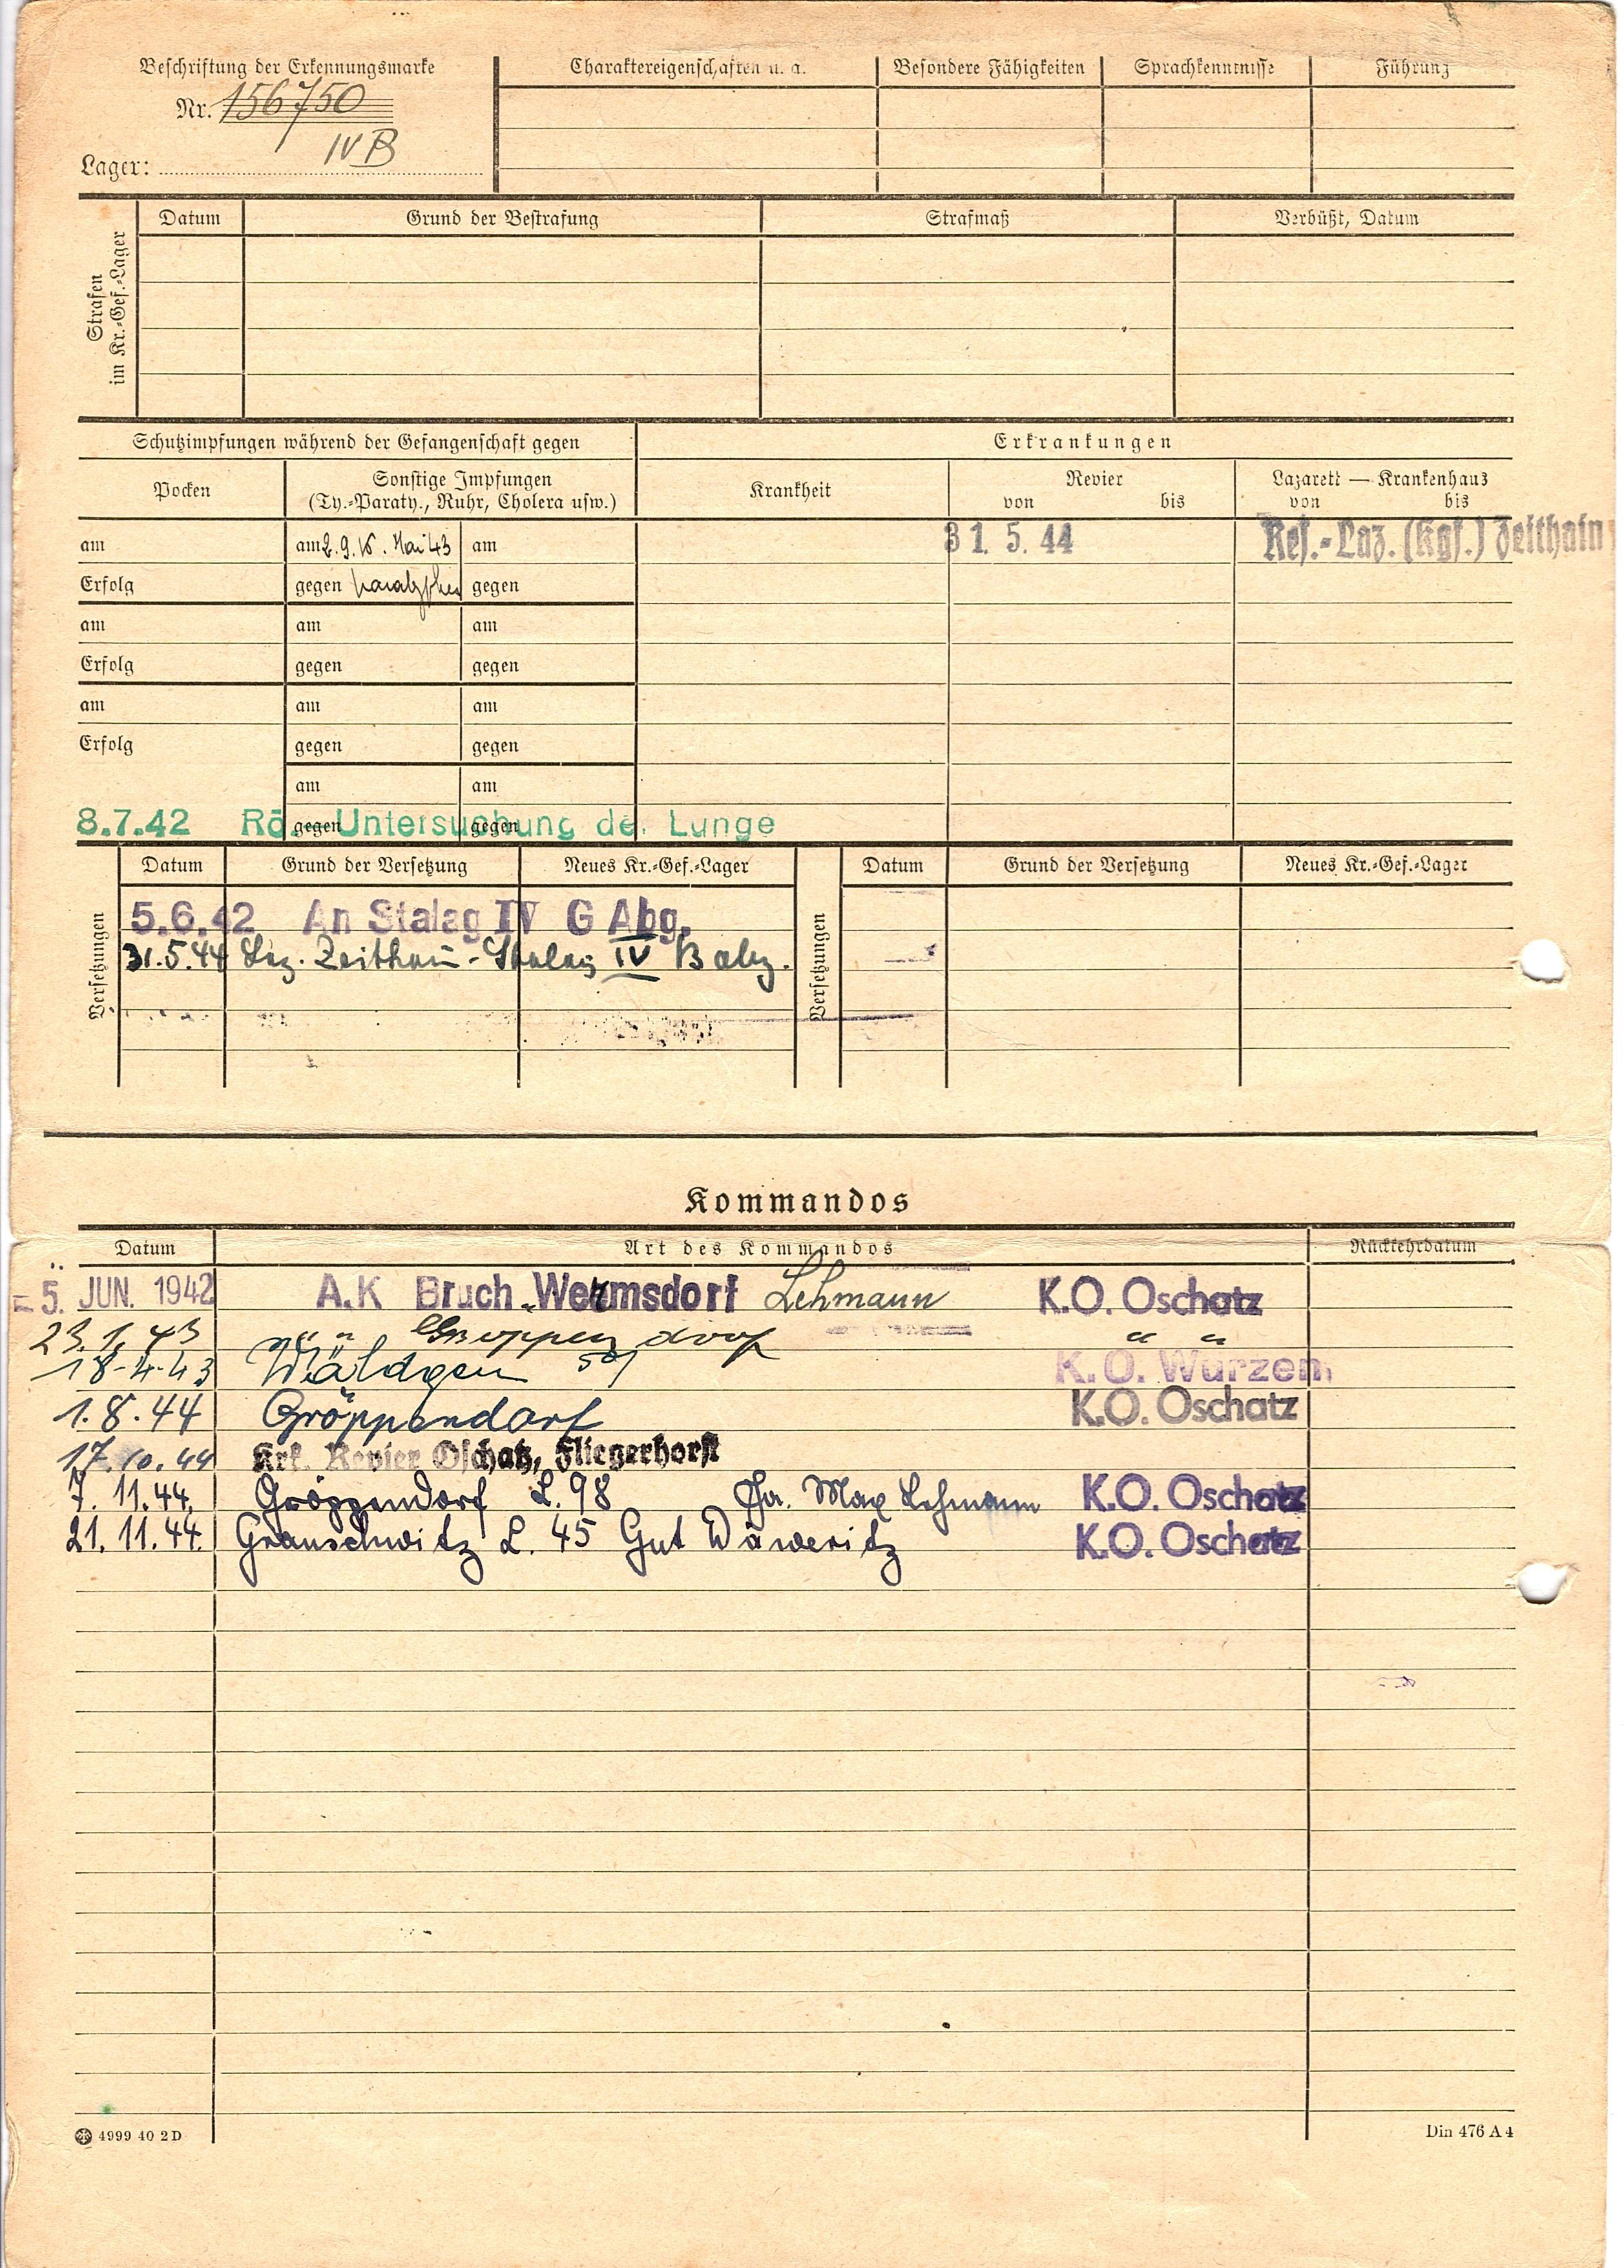 Beschriftung der Erkennungsmarke
Nr. 156750
IV B
Lager:
Charaktereigenschaften u. a.
Besondere Fähigkeiten
Sprachkenntnisse
Führung
Strafen im Kr.-Gef.-Lager
Datum
Grund der Bestrafung
Strafmaß
Verbüßt, Datum
Schutzimpfungen während der Gefangenschaft gegen
Erkrankungen
Pocken
Sonstige Impfungen
(Ty.-Paraty., Ruhr, Cholera usw.)
Krankheit
Revier
von bis
Lazarett — Krankenhaus
von bis
am am 2.9.16. Mai 43 am
31. 5. 44 Res.-Laz. (Kgf.) Zeithain
Erfolg gegen gegen
am am am
Erfolg gegen gegen
am am am
Erfolg gegen gegen
am am
gegen gegen
8.7.42 Rö. Untersuchung de. Lunge
Versetzungen
Datum Grund der Versetzung Neues Kr.-Gef.-Lager
5.6.42 An Stalag IV G Abg.
31.5.44 Laz. Zeithain - Stalag IV B abg.
Versetzungen
Datum Grund der Versetzung Neues Kr.-Gef.-Lager
Kommandos
Datum Art des Kommandos Rückkehrdatum
- 5. JUN. 1942 A.K Bruch Wermsdorf Lehmann K.O. Oschatz
23.1.43 " " Gröppendorf " "
18.4.43 Wäldgen K.O. Wurzen
1.8.44 Gröppendorf K.O. Oschatz
17.10.44 Krk. Revier Oschatz, Fliegerhorst
7.11.44. Gröppendorf L. 98 Fa. Max Lehmann K.O. Oschatz
21.11.44. Granschwitz L. 45 Gut K.O. Oschatz
4999 40 2 D
Din 476 A 4